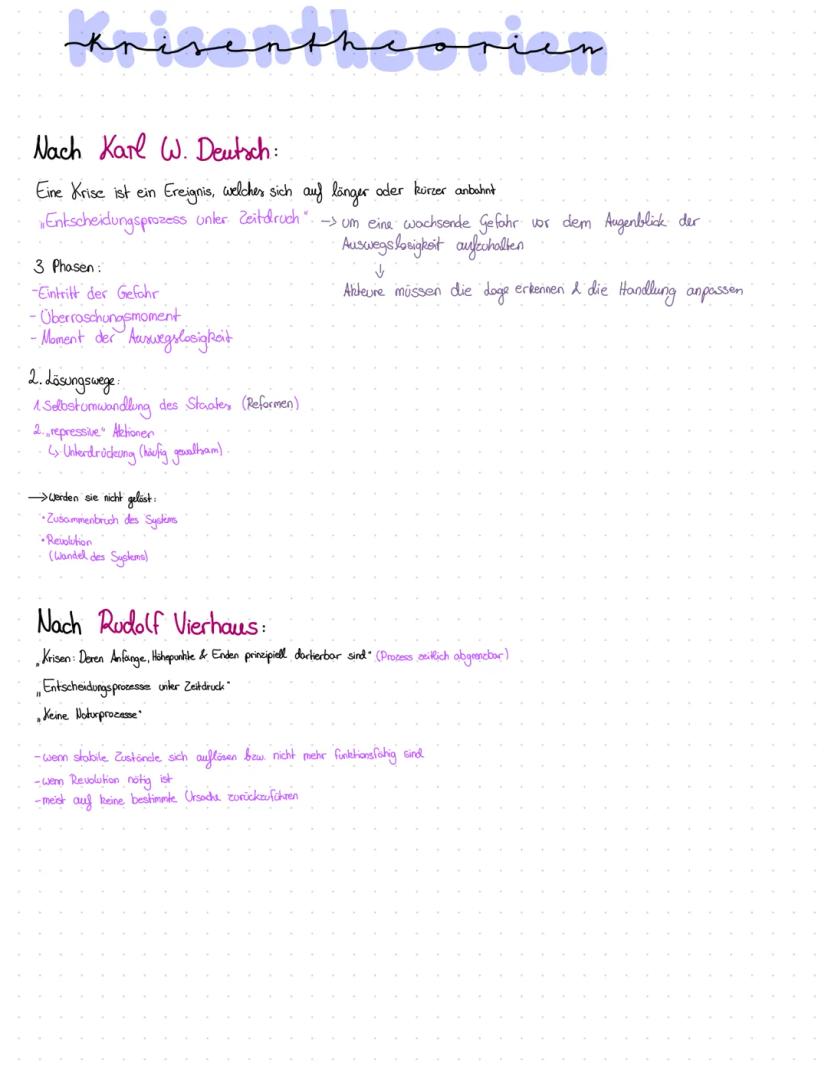 Krisentheorien
Nach Karl W. Deutsch:
Eine Krise ist ein Ereignis, welches sich auf länger oder kürzer anbahnt
„Entscheidungsprozess unter Zeitdruck" -> um eine wachsende Gefahr vor dem Augenblick der
Auswegslosigkeit aufzuhalten
↓
3 Phasen:
Akteure müssen die Lage erkennen & die Handlung anpassen
-Eintritt der Gefahr
- Überraschungsmoment
- Moment der Auswegslosigkeit
2. Lösungswege:
1. Selbstumwandlung des Staates (Reformen)
2. „repressive" Aktionen
↳ Unterdrückung (häufig gewaltsam)
→ Werden sie nicht gelöst:
• Zusammenbruch des Systems
• Revolution
(Wandel des Systems)
Nach Rudolf Vierhaus:
„Krisen: Deren Anfänge, Höhepunkte & Enden prinzipiell datierbar sind" (Prozess zeitlich abgrenzbar)
„Entscheidungsprozesse unter Zeitdruck"
„Keine Naturprozesse"
- wenn stabile Zustände sich auflösen bzw. nicht mehr funktionsfähig sind
- wenn Revolution nötig ist
- meist auf keine bestimmte Ursache zurückzuführen